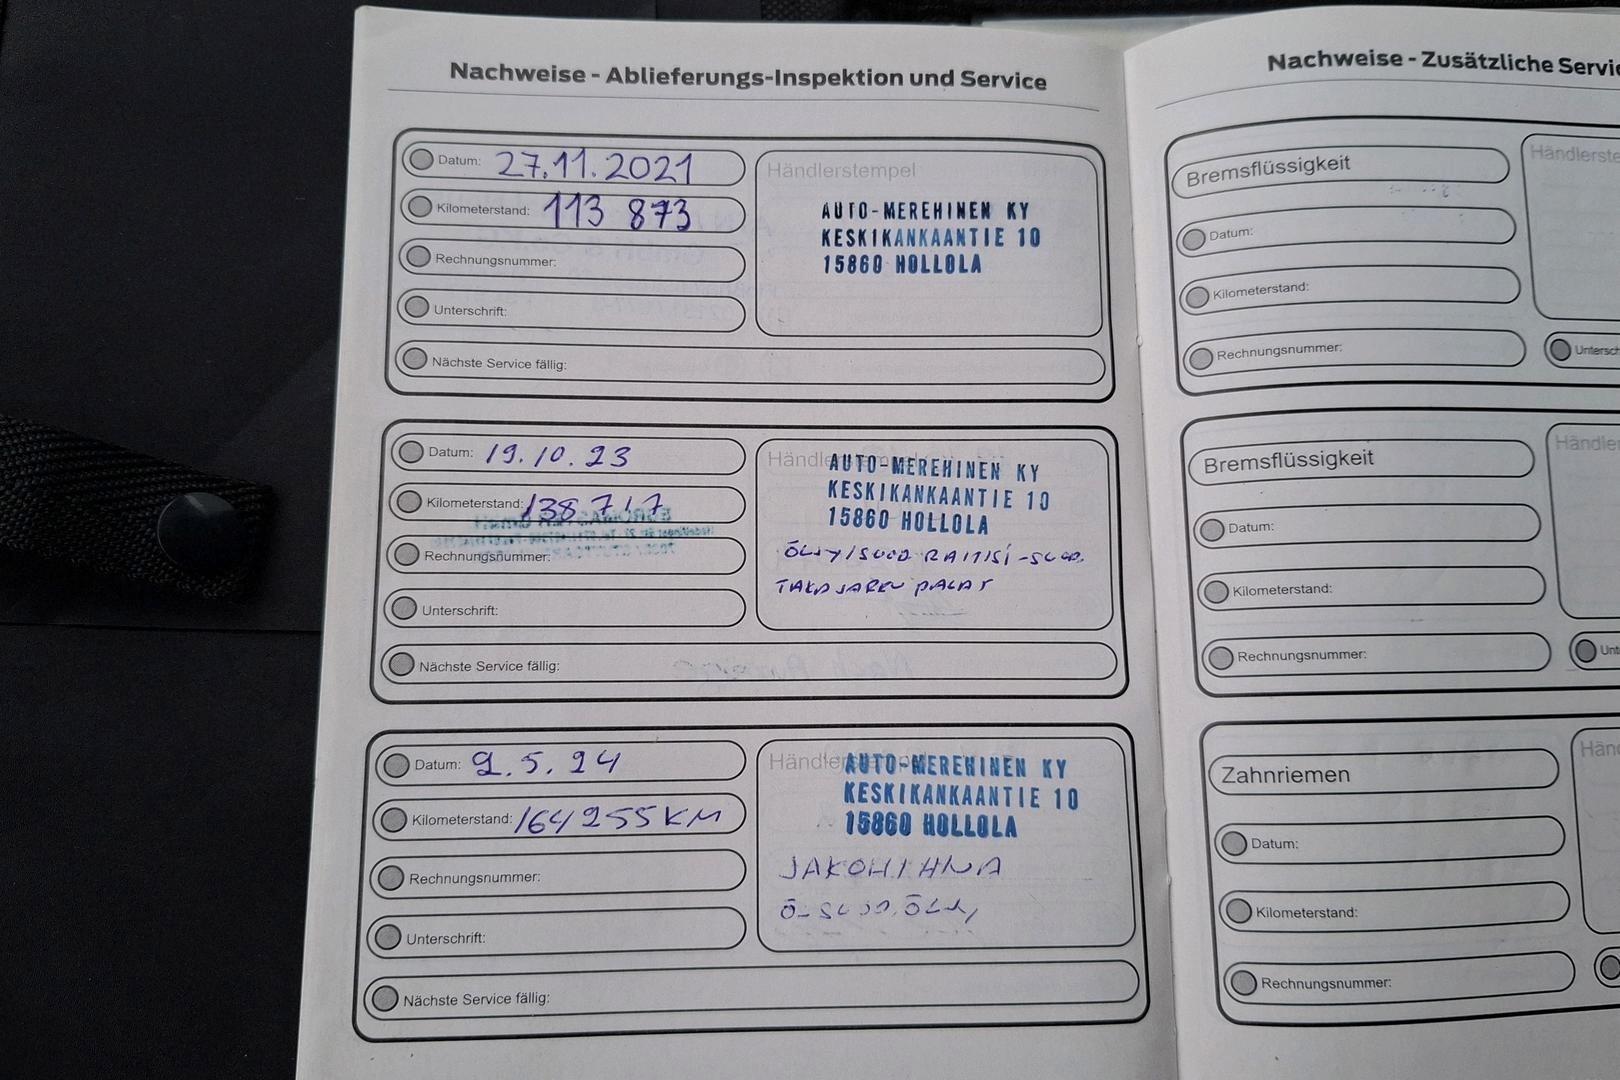 Nachweise - Ablieferungs-Inspektion und Service
Datum: 27.11.2021
Kilometerstand: 113 873
Rechnungsnummer:
Unterschrift:
Nächste Service fällig:
Händlerstempel
AUTO-MEREHINEN KY
KESKIKANKAANTIE 10
15860 HOLLOLA
Datum: 19.10.23
Kilometerstand: 138717
Rechnungsnummer:
Unterschrift:
Nächste Service fällig:
AUTO-MEREHINEN KY
KESKIKANKAANTIE 10
15860 HOLLOLA
ÖLJY/SUOD RAITISI-SUOD.
TAKAJARRU PALAT
Datum: 2.5.24
Kilometerstand: 164255KM
Rechnungsnummer:
Unterschrift:
Nächste Service fällig:
AUTO-MEREHINEN KY
KESKIKANKAANTIE 10
15860 HOLLOLA
JAKOHIHNA
Ö-SUOD, ÖLJY
Nachweise - Zusätzliche Servic
Bremsflüssigkeit
Datum:
Kilometerstand:
Rechnungsnummer:
Händlerste
Untersch
Bremsflüssigkeit
Datum:
Kilometerstand:
Rechnungsnummer:
Händler
Unt
Zahnriemen
Datum:
Kilometerstand:
Rechnungsnummer:
Händ